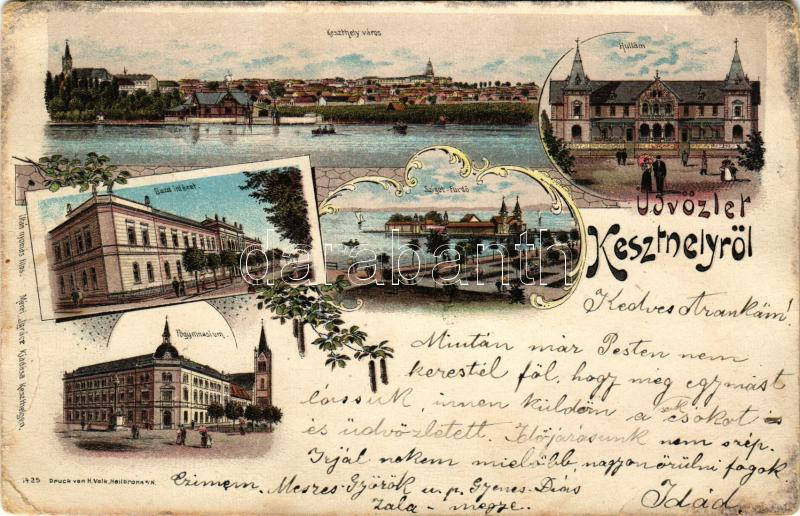 Keszthely város
Hullám
Gazd. intézet.
Sziget-Fürdő
Üdvözlet
Keszthelyről
darabanth
Főgymnasium.
Utánnyomás tilos. Mérei Ignácz Kiadása Keszthelyen.
Kedves Arankám!
Miután már Pesten nem
kerestél föl, hogy még egymást
lássuk, innen küldöm a csókot
és üdvözletett. Időjárásunk nem szép.
Irjál nekem mielőbb, nagyon örülni fogok
Czimem, Meszes-Györök u.p. Gyenes-Diás
Zala-megye.
Idád.
1425 Druck von H. Volk, Heilbronn a/N.